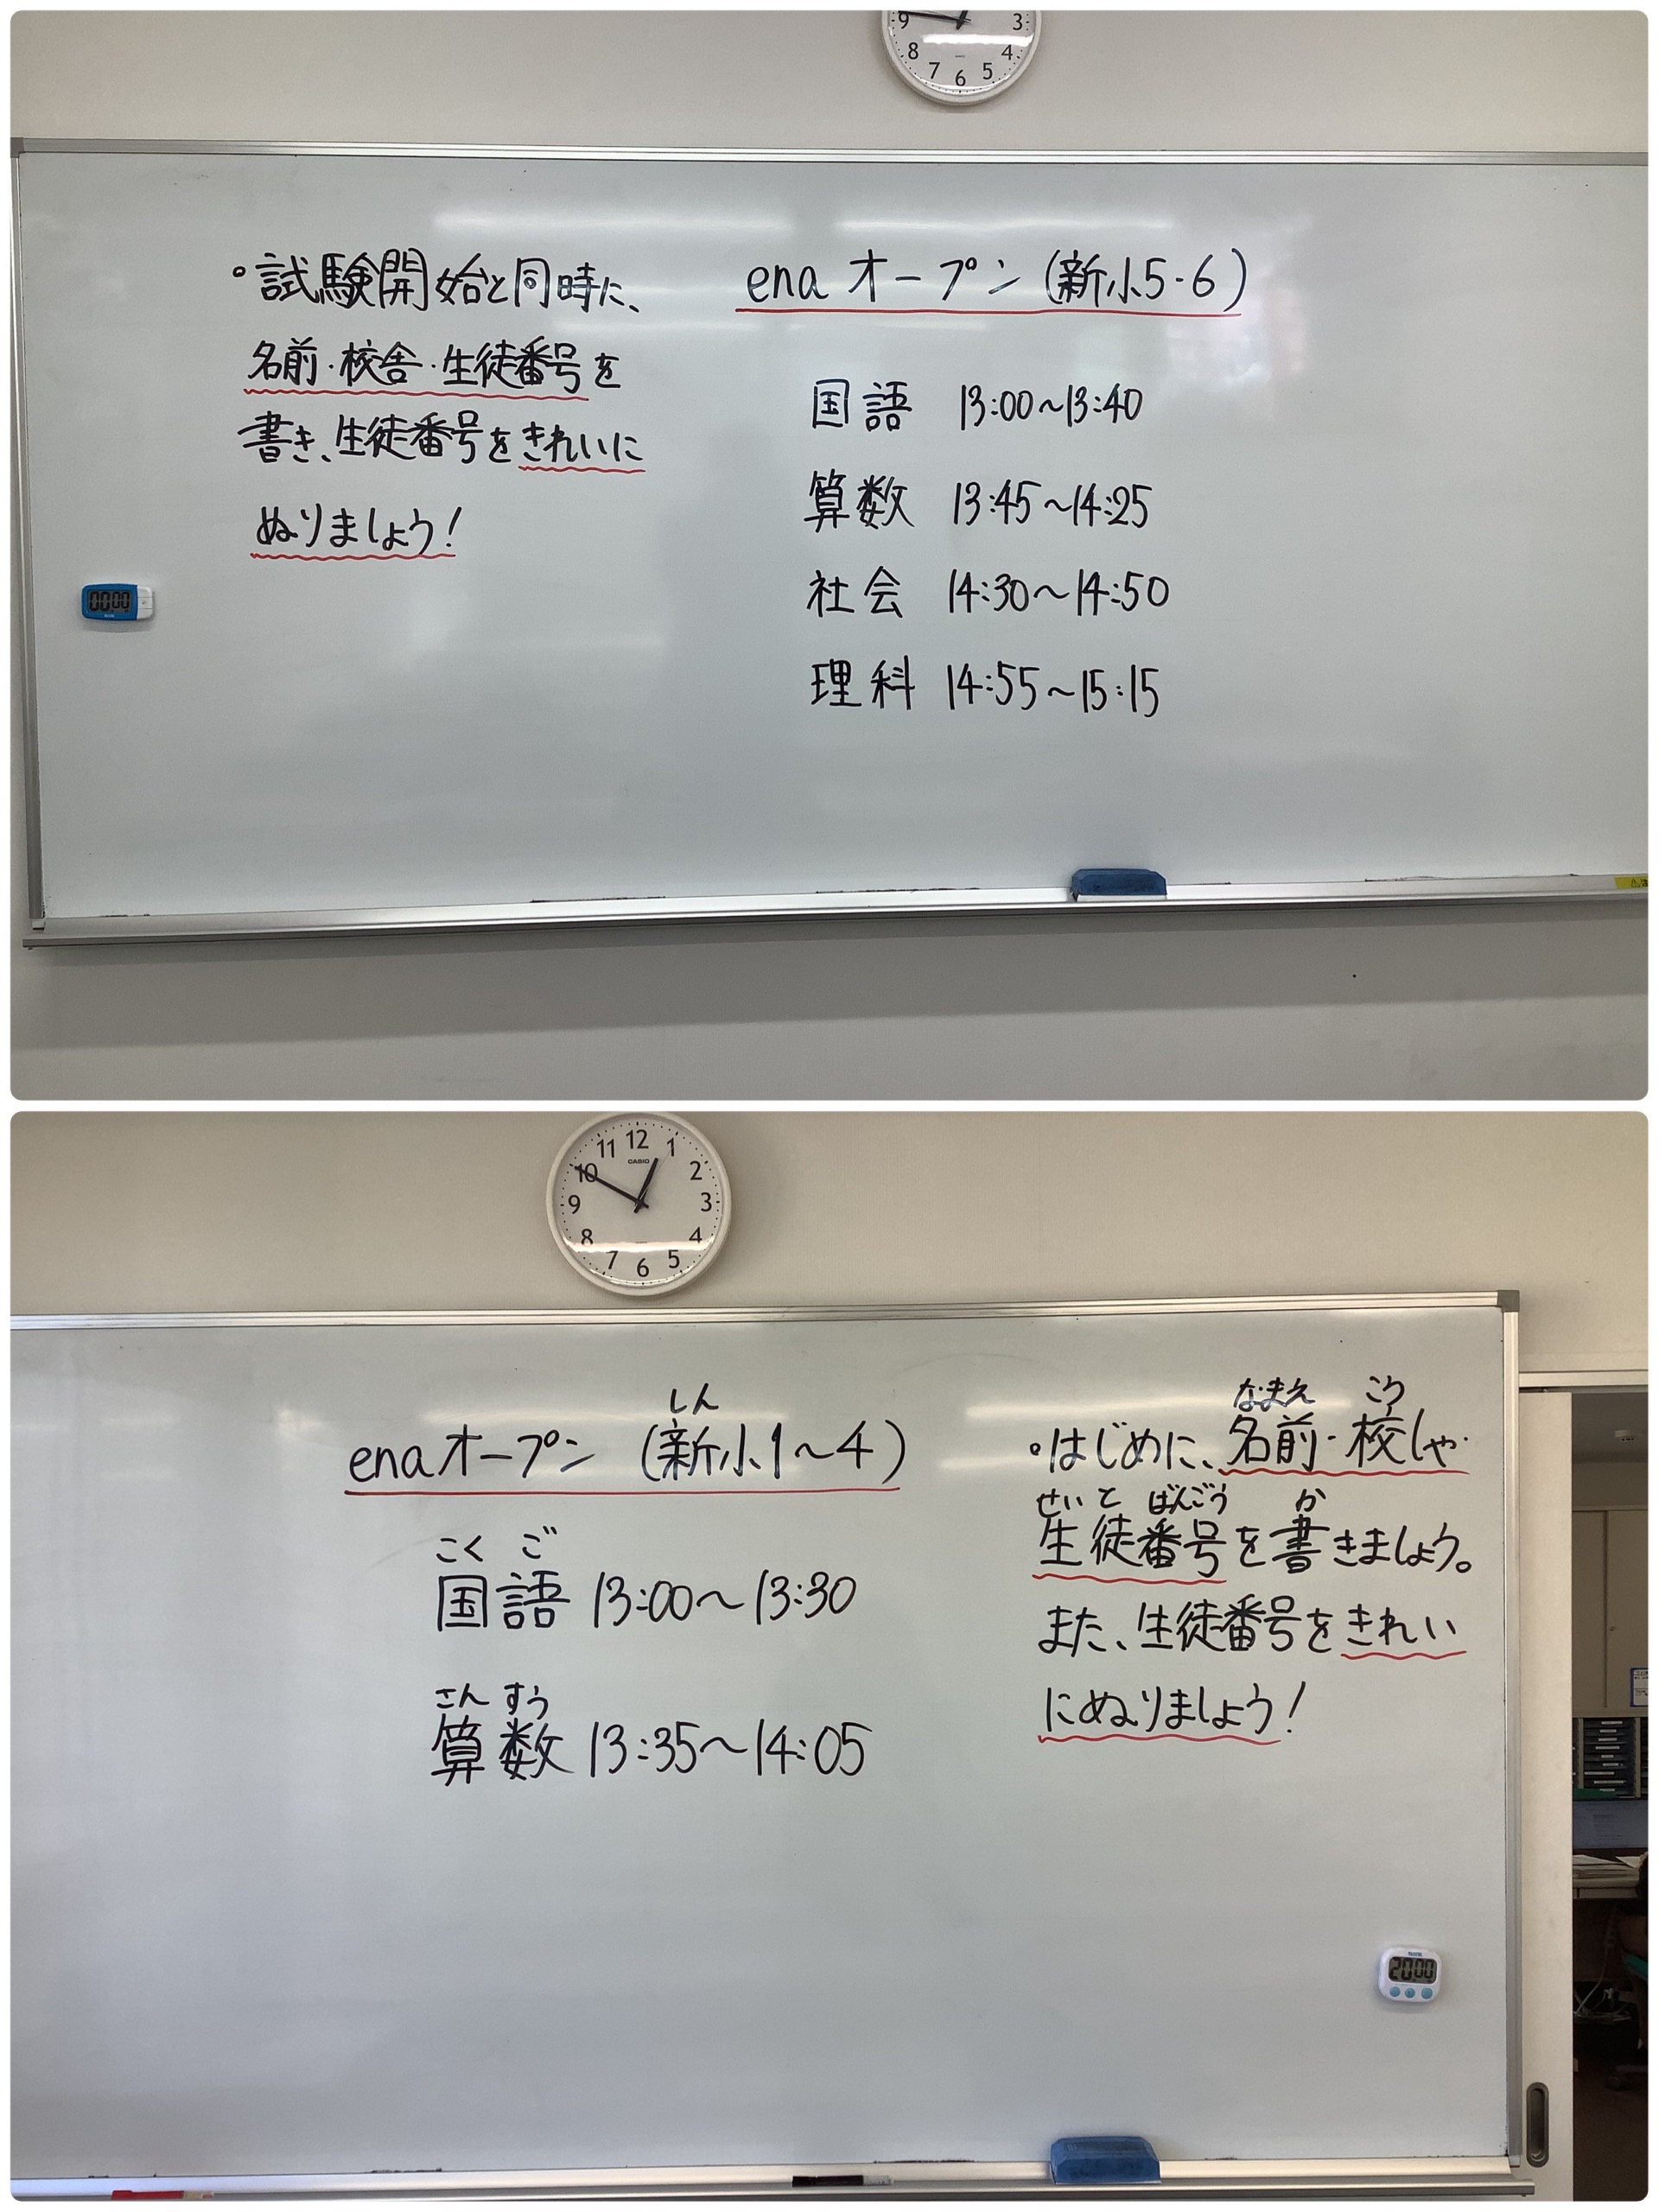 9 3
8 4
7 6 5
・試験開始と同時に、
名前・校舎・生徒番号を
書き、生徒番号をきれいに
ぬりましょう!
00:00
ena オープン (新小5・6)
国語 13:00~13:40
算数 13:45~14:25
社会 14:30~14:50
理科 14:55~15:15
11 12 1
CASIO
10 2
9 3
8 4
7 6 5
しん
enaオープン (新小1~4)
こく ご
国語 13:00~13:30
さん すう
算数 13:35~14:05
なまえ こう
・はじめに、名前・校しゃ・
せい と ばんごう か
生徒番号を書きましょう。
また、生徒番号をきれい
にぬりましょう!
20:00